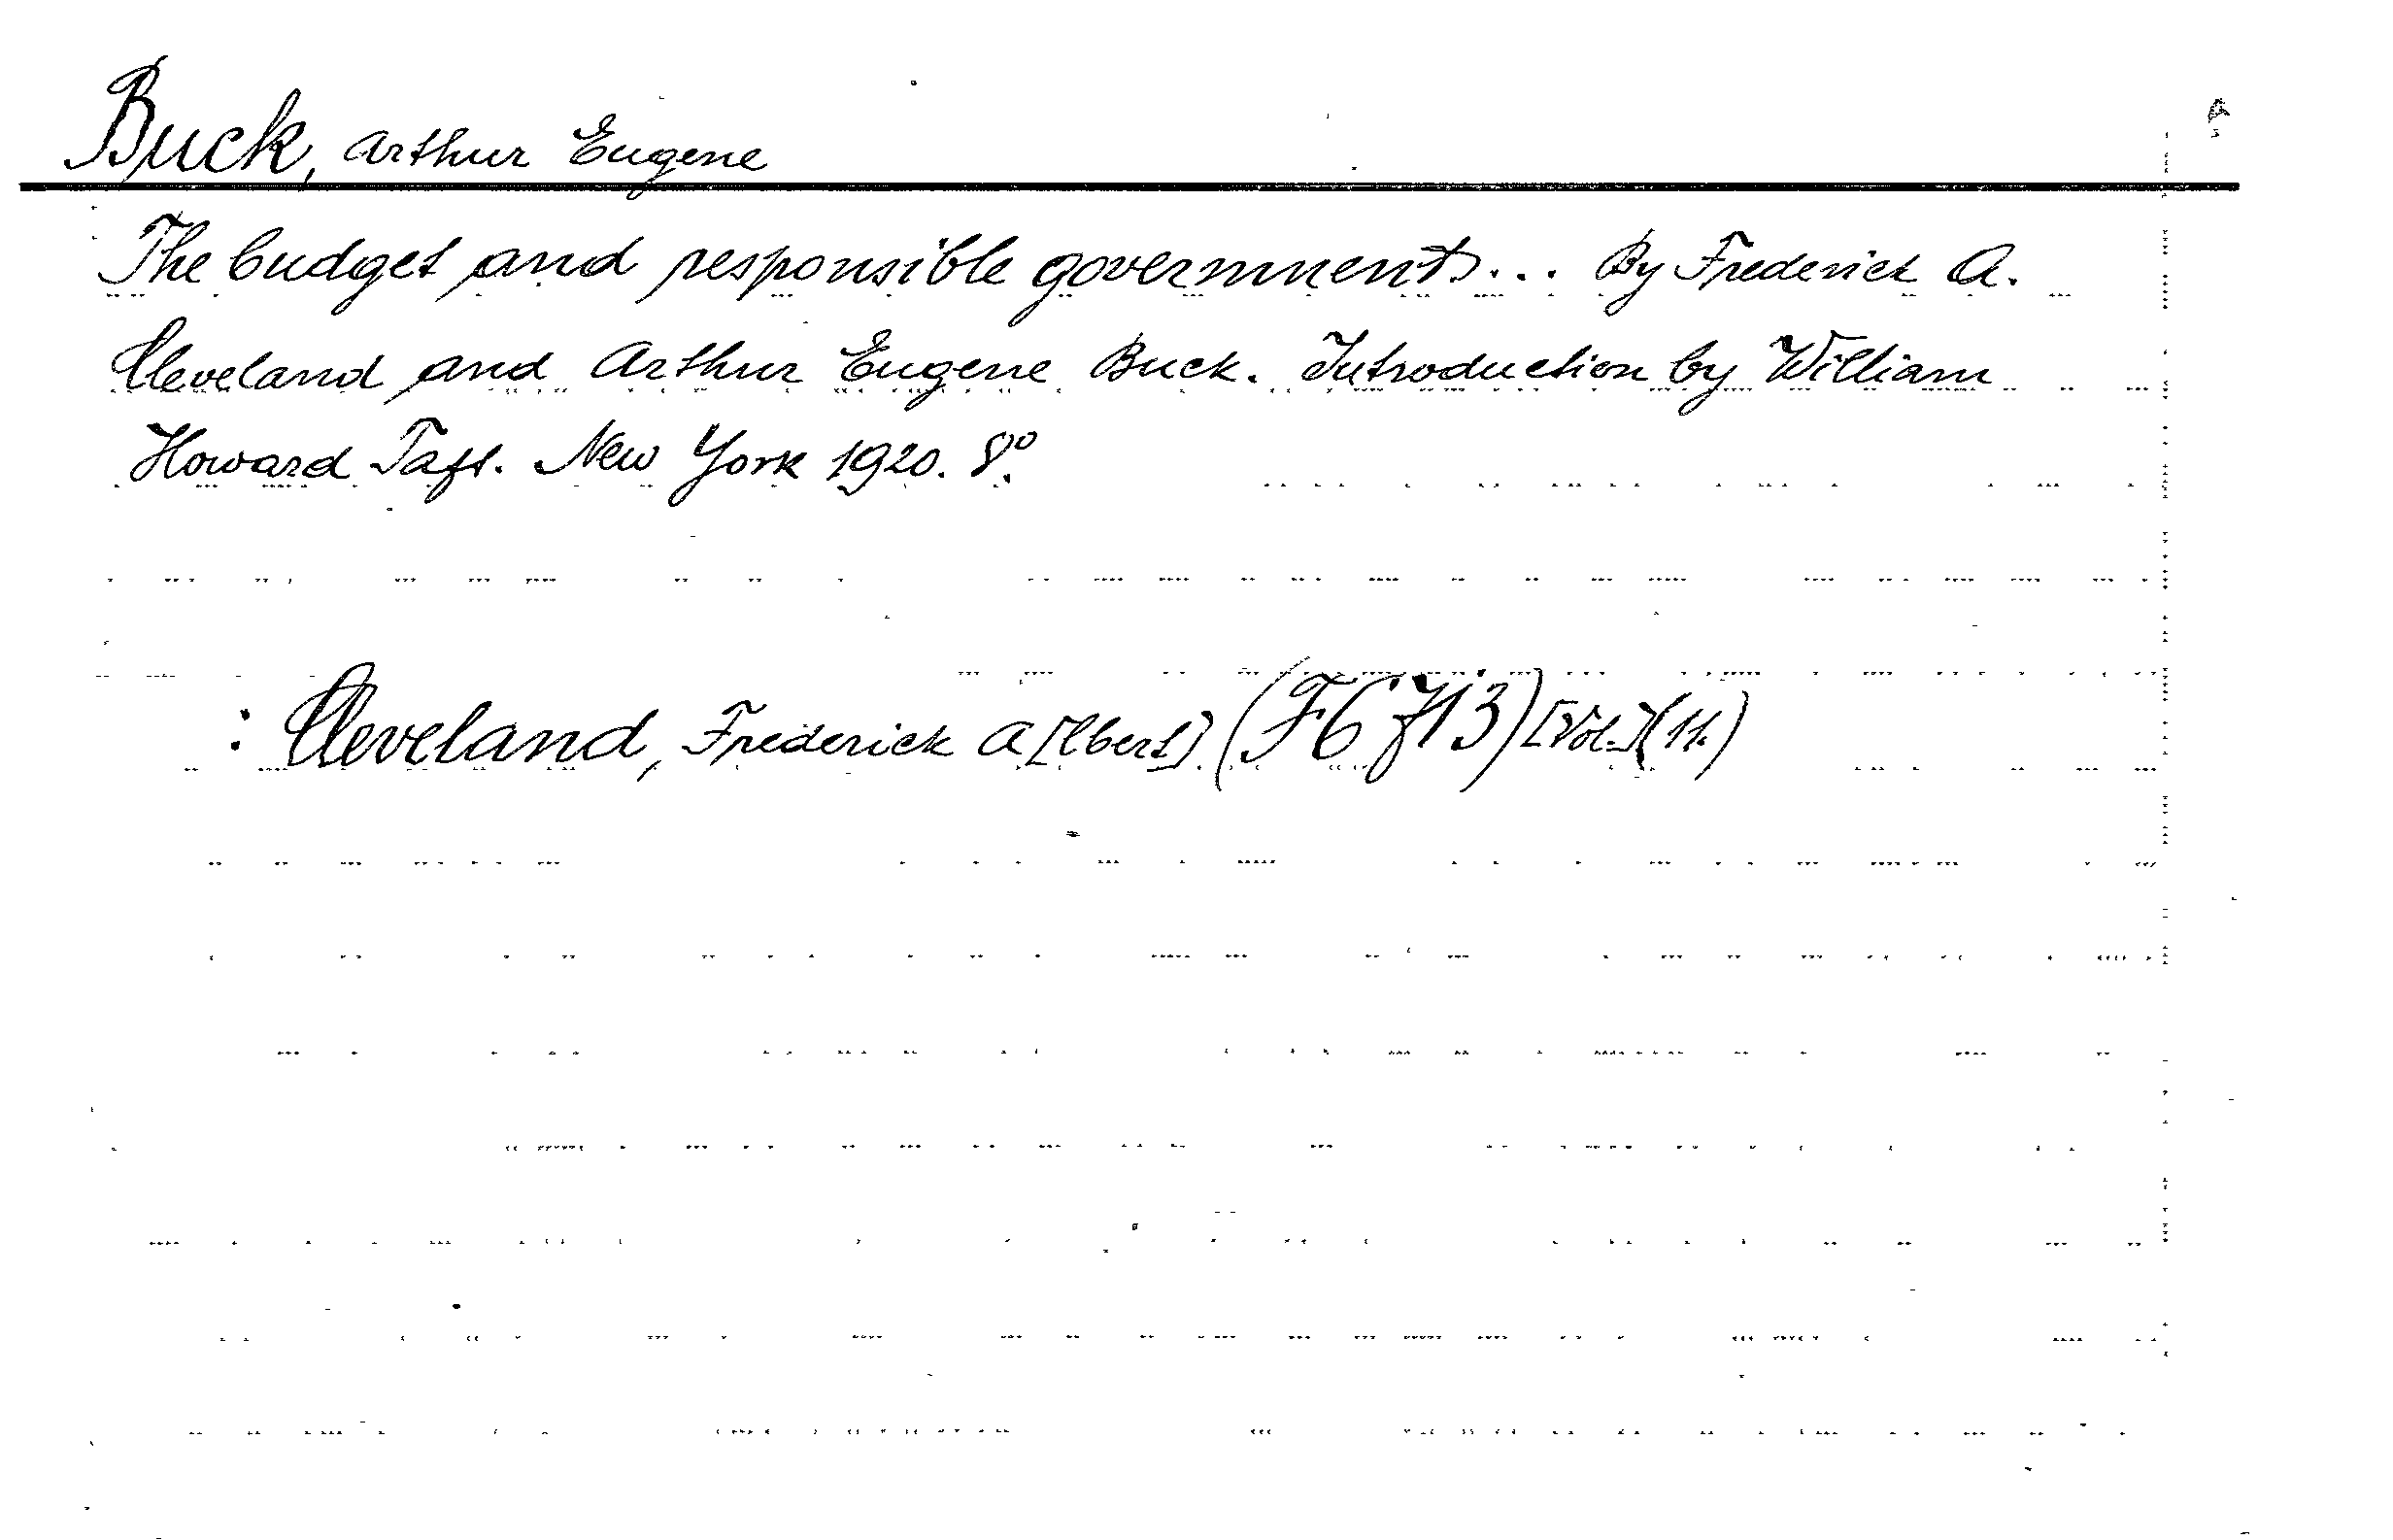 Buck, Arthur Eugene
The budget and responsible government... By Frederick A.
Cleveland and Arthur Eugene Buck. Introduction by William
Howard Taft. New York 1920. 8°.
: Cleveland, Frederick A[lbert] (F6713) [Vol.] (11.)